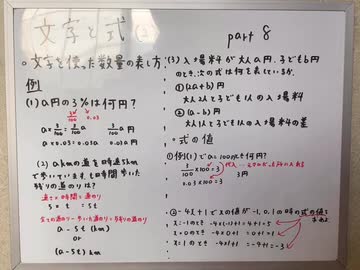 文字と式(2)
part 8
○文字を使った数量の表し方
例
(1) a円の3%は何円?
3/100 0.03
a×3/100=3/100a 3/100a円
a×0.03=0.03a 0.03a円
(2) akmの道を時速5kmで
歩いています。t時間歩いた
残りの道のりは?
速さ×時間=道のり
5×t=5t
全ての道のり-歩いた道のり=残りの道のり
a-5t (km)
or
(a-5t)km
(3) 入場料が大人a円、子どもb円
のとき、次の式は何を表しているか。
①(2a+b)円
大人2人と子ども1人の入場料
②(a-b)円
大人1人と子ども1人の入場料の差
○式の値
①例(1)でa=100だと何円?
3/100×100=3
0.03×100=3
3円
②-4x+1でxの値が-1,0,1の時の式の値を
x:-1のとき -4×(-1)+1=4+1=5
x=0のとき -4×0+1=0+1=1
x:1のとき -4×1+1=-4+1=-3